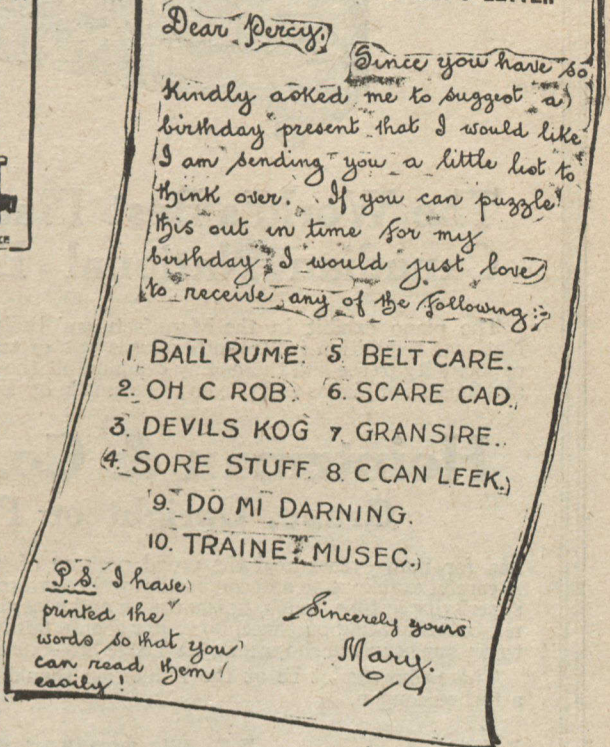 Dear Percy,
Since you have so
kindly asked me to suggest a
birthday present that I would like
I am sending you a little list to
think over. If you can puzzle
this out in time for my
birthday, I would just love
to receive any of the following:-
1. BALL RUME. 5 BELT CARE.
2. OH C ROB. 6. SCARE CAD.
3. DEVILS KOG 7 GRANSIRE.
4. SORE STUFF. 8. C CAN LEEK.
9. DO MI DARNING.
10. TRAINE MUSEC.
P.S. I have
printed the
words so that you
can read them
easily!
Sincerely yours
Mary.